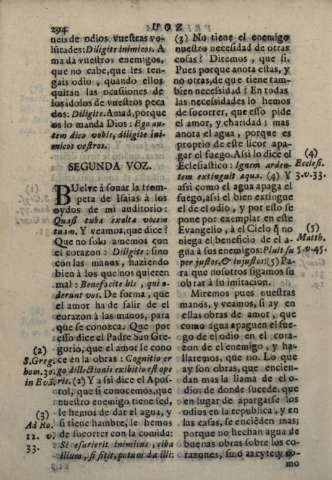 294
VOZ
neis de odios vuestras vo-
lũtades: Diligite inimicos. A
ma da vuestros enemigos,
que no cabe, que les ten-
gais odio, quando ellos
quitan las ocasiones de
los idolos de vuestros peca
dos: Diligite. Amad, porque
os lo manda Dios: Ego au-
tem dico vobis, diligite ini-
micos vestros.
SEGUNDA VOZ.
(1)
BUelve à sonar la trom-
peta de Isaias à los
oydos de mi auditorio:
Quasi tuba exalta vocem
tuam. Y veamos, que dice?
Que no solo amemos con
el corazon: Diligite: sino
con las manos, haziendo
bien à los que nos quieren
mal: Benefacite his, qui o-
derunt vos. De forma, que
el amor ha de salir de el
corazon à las manos, para
que se conozca. Que por
esso dice el Padre San Gre-
gorio, que el amor le cono
(2)
S. Greg.
ce en la obras:
bom. 30.
go dilectionis exhibitio est ope
in Evã.
ris. (2) Y asi dice el Apos-
tol, que si conocemos, que
nuestro enemigo tiene sed,
(3)
le hemos de dar el agua, y
Ad Ro.
si tiene hambre, le hemos
12. v.
de socorrer con la comida:
33.
Si esurierit inimicus, ciba
illum, si sitit, potum da illi:
(3) No tiene el enemigo
nuestro necesidad de otras
cosas? Diremos, que si.
Pues porque anota estas, y
no otras, de que tiene tam-
bien necessidad? En todas
las necesidades lo hemos
de socorrer, que esto pide
el amor, y charidad: mas
anota el agua, porque es
proprio de este licor apa-
gar el fuego. Asi lo dice el
Eclesiastico: Ignem arden-
tem extinguit aqua. (4) Y
(4)
Ecclesi.
3. v. 33.
assi como el agua apaga el
fuego, asi el bien extingue
el de el odio, y por esso se
pone por exemplar en este
Evangelio, à el Cielo q̃ no
niega el beneficio de el a-
gua à sus enemigos: Pluit su
per justos, & injustos: (5) Pa-
(5)
Matth.
5. v. 45.
ra que nosotros sigamos su
obrar à su imitacion.
Miremos pues nuestras
manos, y veamos, si ay en
ellas obras de amor, que
como agua apaguen el fue-
go de el odio en el cora-
zon de el enemigo, y ha-
llaremos, que no. Lo que
ay son obras, que encien-
dan mas la llama de el o-
dio de donde sucede, que
en lugar de apagarse los
odios en la republica, y en
las casas, se enciẽden mas;
porque no hechan agua de
buenas obras sobre los co-
razones, sino azeyte y co-
mo